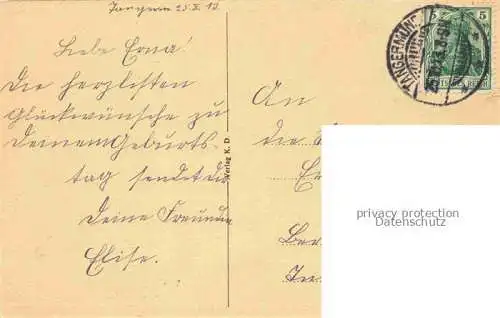 Liebe Erna!
Die herzlisten
Glückwünsche zu
Deinem Geburts-
tag sendet dir
Deine Freundin
Elise.
An
die
Verlag K. D.
TANGERMÜNDE
5
privacy protection
Datenschutz